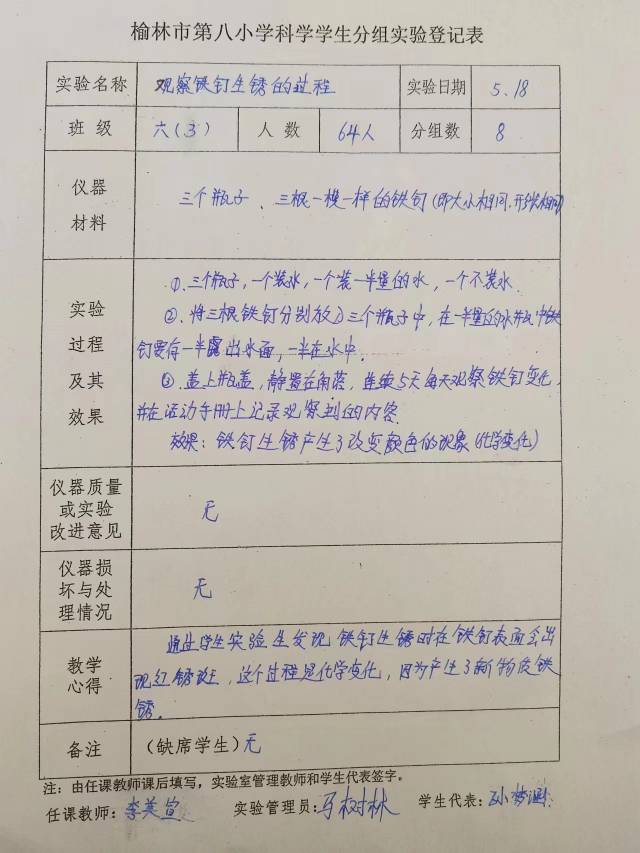 榆林市第八小学科学学生分组实验登记表
实验名称 观察铁钉生锈的过程 实验日期 5.18
班级 六(3) 人数 64人 分组数 8
仪器
材料
三个瓶子、三根一模一样的铁钉(即大小相同.形状相同)
实验
过程
及其
效果
①.三个瓶子,一个装水,一个装一半量的水,一个不装水.
②.将三根铁钉分别放入三个瓶子中,在一半量的水瓶中铁
钉要有一半露出水面,一半在水中.
③.盖上瓶盖,静置在角落,连续5天每天观察铁钉变化,
并在活动手册上记录观察到的内容.
效果:铁钉生锈产生了改变颜色的现象(化学变化)
仪器质量
或实验
改进意见
无
仪器损
坏与处
理情况
无
教学
心得
通过学生实验生发现铁钉生锈时在铁钉表面会出
现红锈斑,这个过程是化学变化,因为产生了新物质铁
锈.
备注 (缺席学生)无
注:由任课教师课后填写,实验室管理教师和学生代表签字。
任课教师:李美宣 实验管理员:马树林 学生代表:孙梦